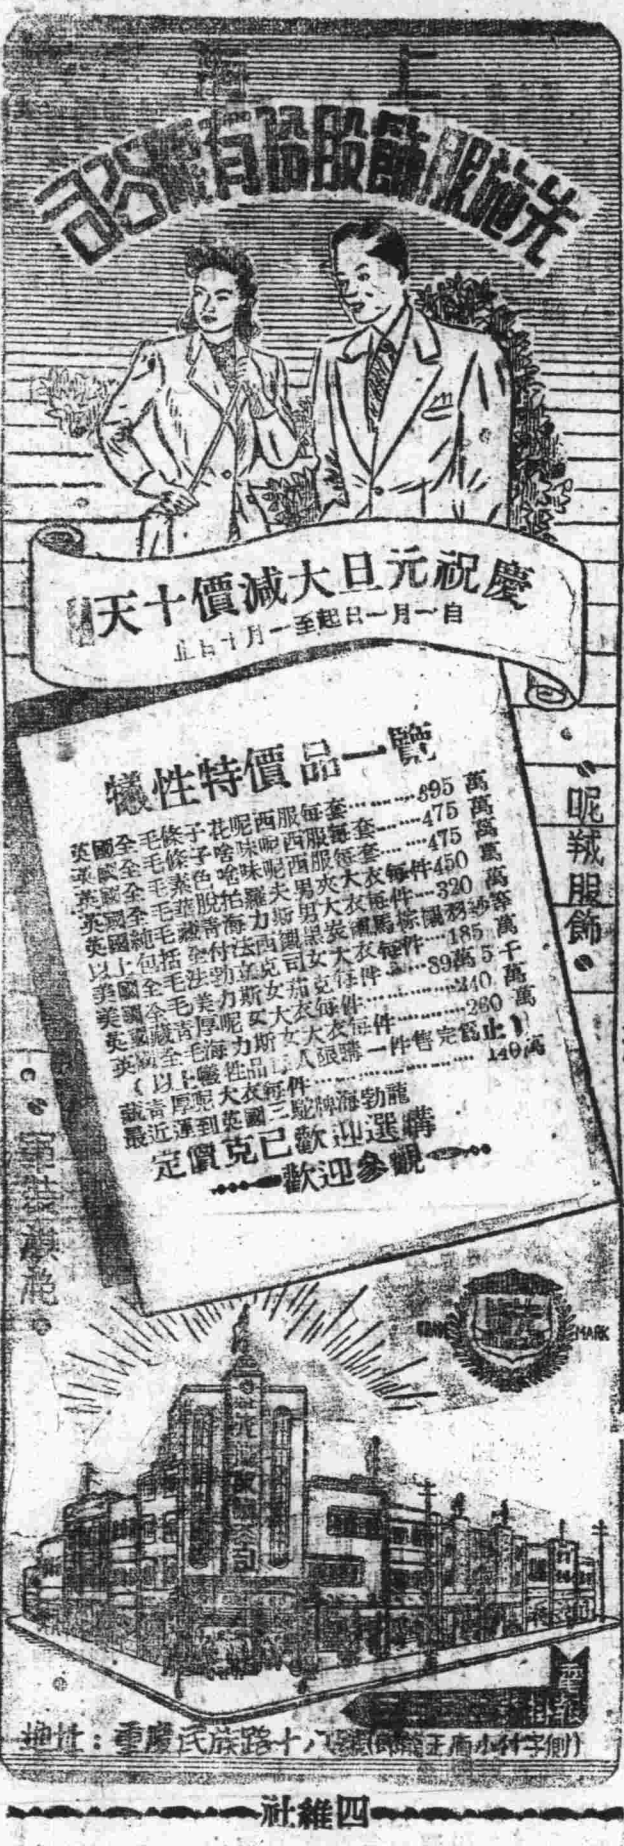 上海
先施服飾股份有限公司
慶祝元旦大減價十天
自一月一日起至一月十日止
犧牲特價品一覽
英國全毛條子花呢西服每套………395 萬
英國全毛條子啥味呢西服每套……475 萬
英國全毛素色啥味呢西服每套……475 萬
英國全毛華脫拍羅夫男夾大衣每件450 萬
英國純毛藏青海力斯男大衣每件…320 萬
以上包括全付法西襯黑炭襯馬棕襯羽紗等
美國全毛法勃立克司女大衣每件…185 萬
美國全毛美力斯女茄克每件……89萬5千
英國藏青厚呢女大衣每件…………240 萬
英國全毛海力斯女大衣每件………260 萬
(以上犧牲品每人限購一件售完為止)
藏青厚呢大衣每件…………………140萬
最近運到英國三駝牌海勃龍
定價克已歡迎選購
歡迎參觀
呢羢服飾
TRADE MARK
先施
地址：重慶民族路十八號
四維社